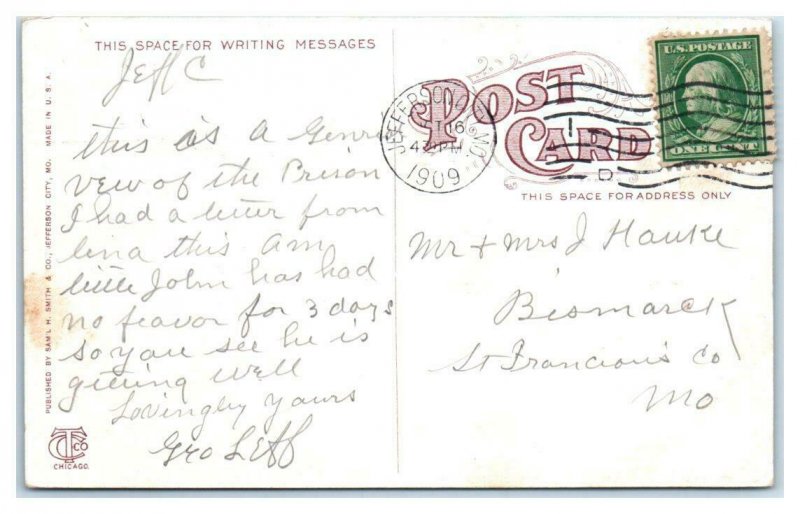 THIS SPACE FOR WRITING MESSAGES
Jeff C
this is a Genrel
view of the Prison
I had a letter from
lena this am
little John has had
no feavor for 3 days
so you see he is
gitting well
Lovingly yours
Geo Leff
PUBLISHED BY SAM'L H. SMITH & CO., JEFFERSON CITY, MO. MADE IN U.S.A.
CTCO
CHICAGO.
POST
CARD
THIS SPACE FOR ADDRESS ONLY
JEFFERSON CITY, MO.
16
4 PM
1909
D
U.S. POSTAGE
ONE CENT
Mr + Mrs J Hauke
Bismarck
St Francious Co
Mo